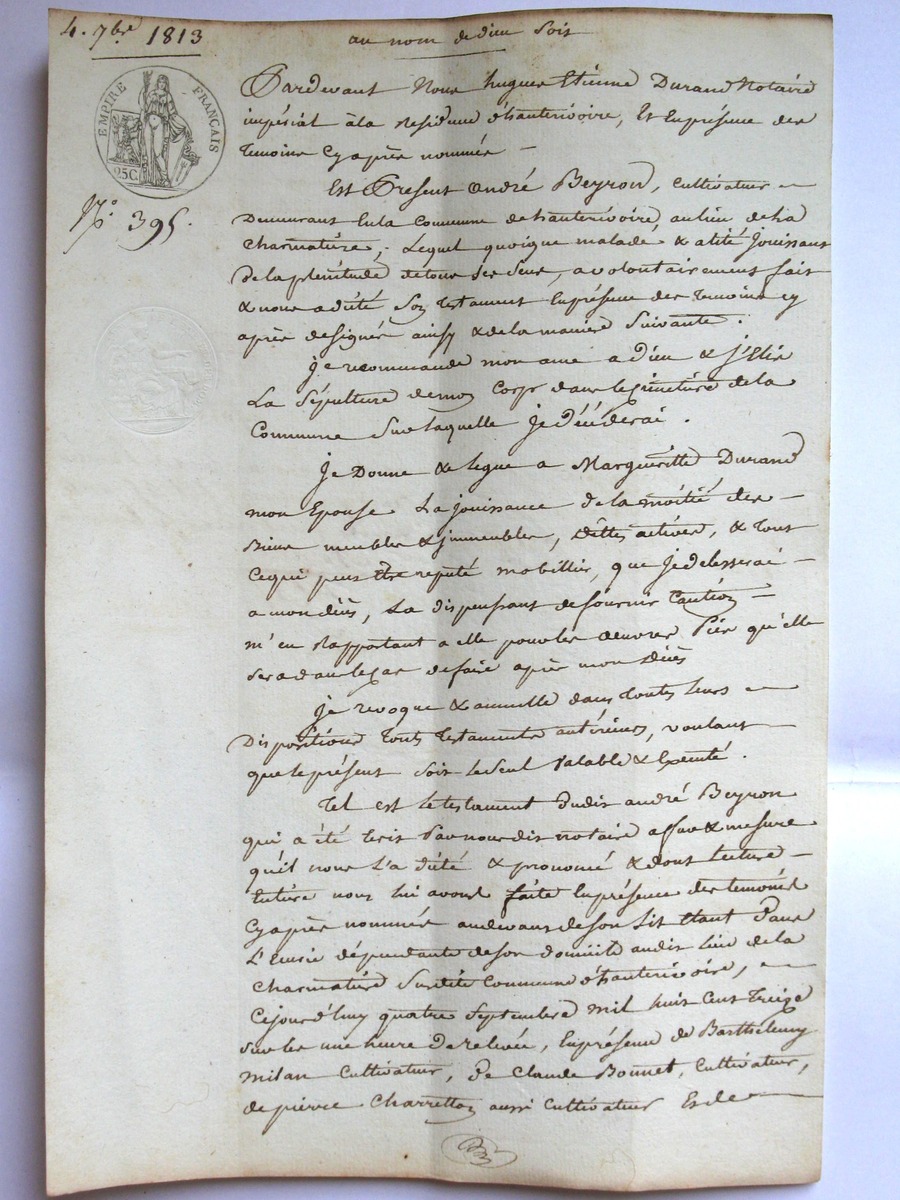 4. 7bre 1813
au nom de dieu soit
EMPIRE FRANÇAIS
25C.
N.° 395.
Pardevant Nous hugues Etienne Durand Notaire
impérial à la residence d'hauterivoire, Et En présence des
temoins Cy après nommés —
Est Présent andré Beyron, Cultivateur —
Demeurant En la Commune d'hauterivoire, au lieu de la
Charmature, Lequel quoique malade & alité Jouissant
de la plénitude de tous ses sens, a volontairement fait
& nous a dicté Son testament En présence des temoins cy
après designés ainsy & de la maniere Suivante.
je recommande mon ame a Dieu & J'Elis
La Sépulture de mon Corps dans le cimetiere de la
Commune Sur laquelle Je décéderai.
Je Donne & legue a Margueritte Durand
mon Epouse La jouissance de la moitié des —
Biens meubles & jmmeubles, dettes actives, & tout
ce qui peut être reputé mobillier, que je delesserai —
a mon décès, La dispensant de fournir Caution —
m'en Rapportant a elle pour les oeuvres Pies qu'elle
sera dans le Cas de faire après mon Décès
je revoque & annulle dans toutes leurs —
Dispositions touts testaments antérieurs, voulant
que le présent soit le seul valable & Exécuté.
Tel est le testament dudit andré Beyron
qui a été Ecrit Par nous dit notaire a fur & mesure
qu'il nous l'a dicté & prononcé & dont Lecture —
Entiere nous lui avons faite En présence des temoins
Cy après nommés au devant de son lit Etant Dans
L'Ecurie dépendante de son domicile audit Lieu de la
Charmature Susdite Commune d'hauterivoire, —
Cejourd'huy quatre Septembre mil huit Cent Treize
sur les une heure de relevée, En présence de Barthelemy
milan Cultivateur, De Claude Bonnet, Cultivateur,
de pierre Charretton aussi Cultivateur Et de —